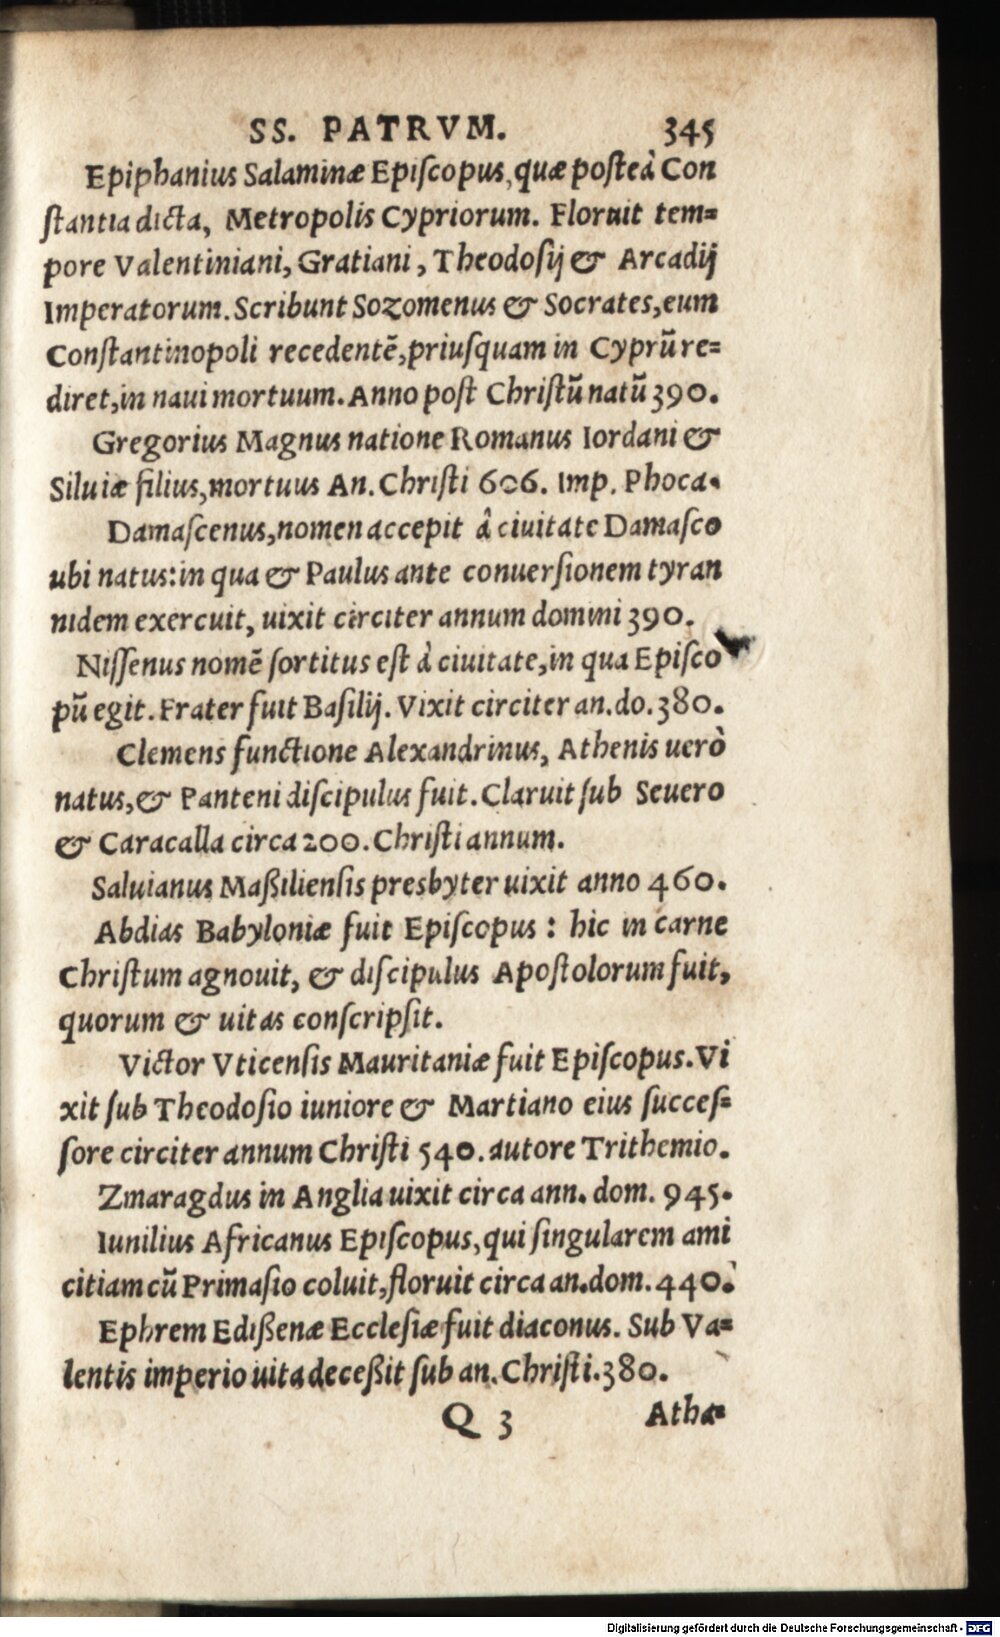 SS. PATRVM. 345
Epiphanius Salaminæ Epiſcopus, quæ posteà Con
ſtantia dicta, Metropolis Cypriorum. Floruit tem=
pore Valentiniani, Gratiani, Theodoſij & Arcadij
Imperatorum. Scribunt Sozomenus & Socrates, eum
Conſtantinopoli recedentẽ, priuſquam in Cyprũ re=
diret, in naui mortuum. Anno poſt Chriſtũ natũ 390.
Gregorius Magnus natione Romanus Iordani &
Siluiæ filius, mortuus An. Chriſti 606. Imp. Phoca.
Damaſcenus, nomen accepit â ciuitate Damaſco
ubi natus: in qua & Paulus ante conuerſionem tyran
nidem exercuit, uixit circiter annum domini 390.
Niſſenus nomẽ ſortitus eſt à ciuitate, in qua Epiſco
pũ egit. Frater fuit Baſilij. Vixit circiter an. do. 380.
Clemens functione Alexandrinus, Athenis uerò
natus, & Panteni diſcipulus fuit. Claruit ſub Seuero
& Caracalla circa 200. Chriſti annum.
Saluianus Maßilienſis presbyter uixit anno 460.
Abdias Babyloniæ fuit Epiſcopus: hic in carne
Chriſtum agnouit, & diſcipulus Apoſtolorum fuit,
quorum & uitas conſcripſit.
Victor Vticenſis Mauritaniæ fuit Epiſcopus. Vi
xit ſub Theodoſio iuniore & Martiano eius ſucceſ=
ſore circiter annum Chriſti 540. autore Trithemio.
Zmaragdus in Anglia uixit circa ann. dom. 945.
Iunilius Africanus Epiſcopus, qui ſingularem ami
citiam cũ Primaſio coluit, floruit circa an. dom. 440.
Ephrem Edißenæ Eccleſiæ fuit diaconus. Sub Va=
lentis imperio uita deceßit ſub an. Chriſti. 380.
Q 3 Atha=
Digitalisierung gefördert durch die Deutsche Forschungsgemeinschaft - DFG